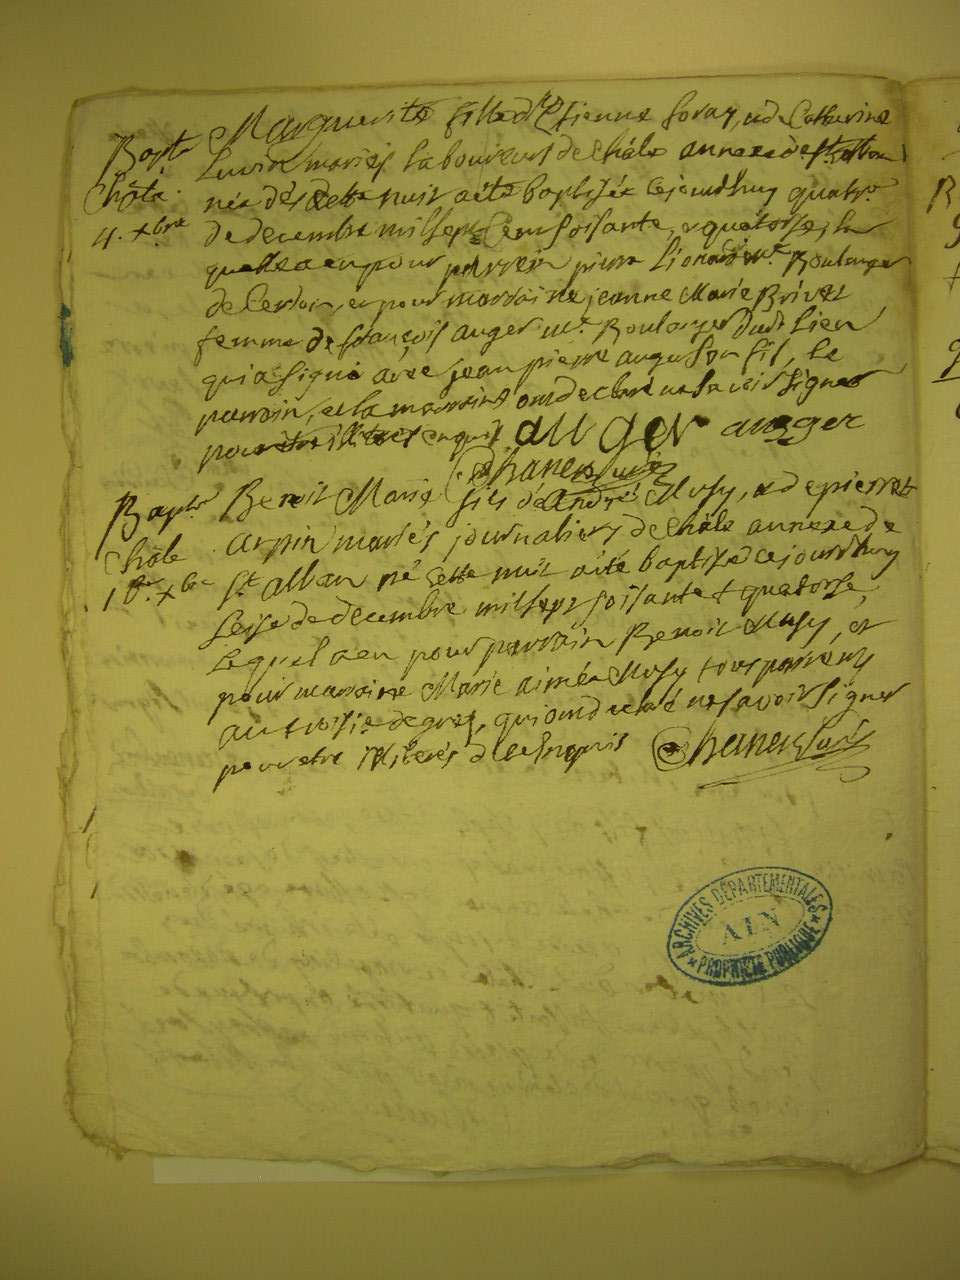 Bapt.
Châle
4. xbre
Marguerite fille d'Etienne foray, et de Catherine
mariés laboureurs de Châle annexe de St alban
née dès cette nuit a été baptisée cejourdhuy quatre
de decembre mil sept cent soisante et quatorse, la
quelle a eu pour parrein pierre Boulanger
de Cerdon, et pour marraine jeanne Marie Brivet
femme de françois auger mt Boulanger dudt Lieu
qui a signé avec jean pierre auger son fil, le
parrain, et la marraine ont declaré ne savoir signer
pour être illiterés enquis auger auger
Bapt.
Châle
16. xbre
Benoit Marie fils d'andré Musy, et de pierrette
arpin mariés journaliers de Châle annexe de
St alban né cette nuit a été baptisé cejourdhuy
seise de decembre mil sept soisante et quatorse,
lequel a eu pour parrain Benoit Musy, et
pour marraine Marie aimée Musy tous parrens
au troisie degrez, qui ont declaré ne savoir signer
pour etre illiterés de ce enquis
ARCHIVES DÉPARTEMENTALES
AIN
PROPRIÉTÉ PUBLIQUE